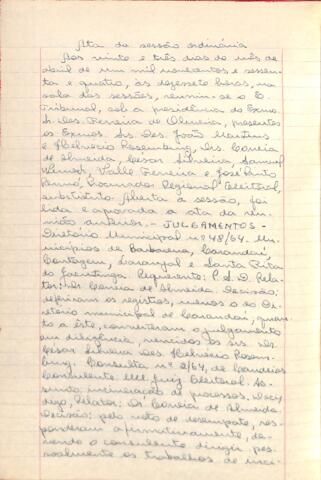 Ata da sessão ordinária
Aos vinte e três dias do mês de
abril de um mil novecentos e sessen-
ta e quatro, às dezessete horas, na
sala das sessões, reuniu-se o E.
Tribunal, sob a presidência do Exmo.
Sr. Des. Ferreira de Oliveira, presentes
os Exmos. Srs. Des. João Martins
e Helvécio Rosenburg, Drs. Corrêa
de Almeida, César Silveira, Samuel
Valle Ferreira e José Pinto
Procurador Regional Eleitoral,
substituto. Aberta a sessão, foi
lida e aprovada a ata da reu-
nião anterior. - JULGAMENTOS -
Diretório Municipal nº 48/64. Mu-
nicípios de Barbacena, Carandaí,
Contagem, Laranjal e Santa Rita
do Jacutinga. Requerente: P.S.D. Rela-
tor: Dr. Corrêa de Almeida. Decisão:
deferiram os registros, menos o do Di-
retório municipal de Carandaí, quan-
to a êste, converteram o julgamento
em diligência, vencidos os srs. Drs.
César Silveira Des. Helvécio Rosen-
burg. Consulta nº 2/64, de
Consulente: MM. Juiz Eleitoral. As-
sunto: incineração de processos.
Relator: Dr. Corrêa de Almeida.
Decisão: pelo voto de desempate, res-
ponderam afirmativamente, de-
vendo o consulente dirigir pes-
soalmente os trabalhos de inci-